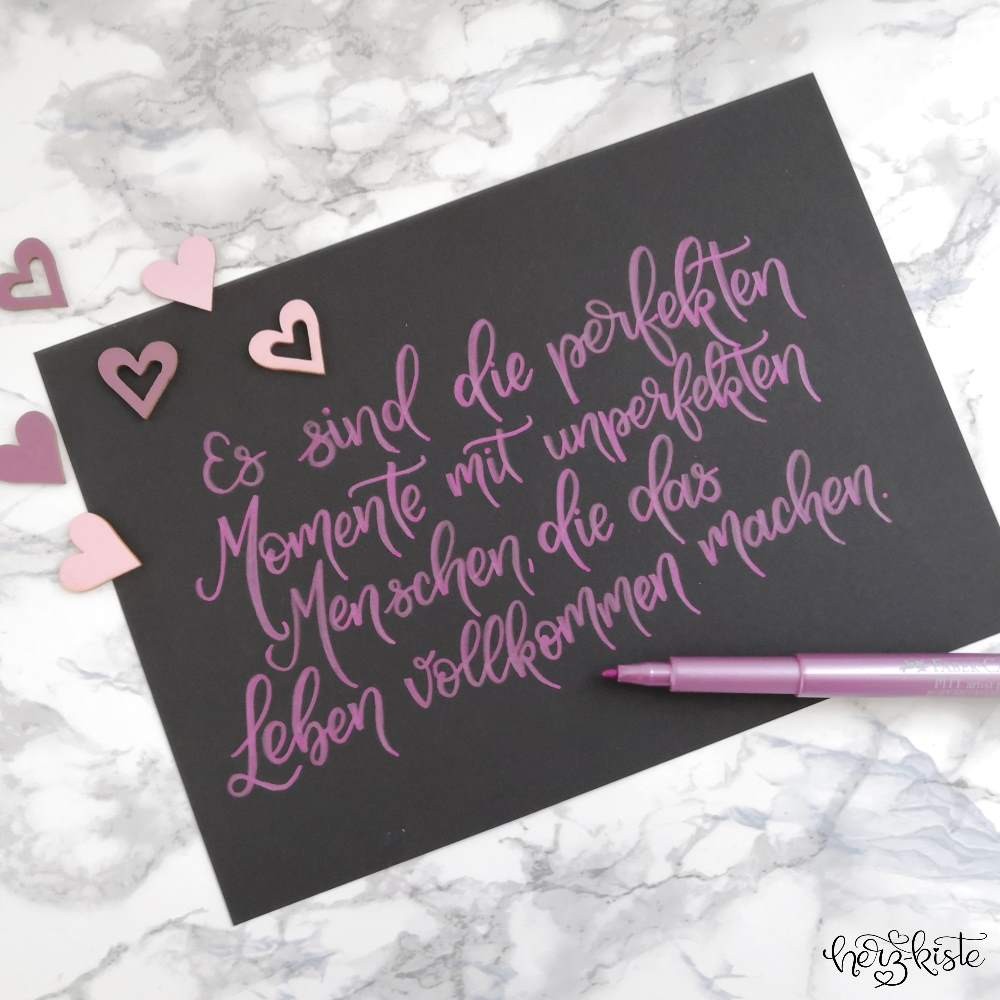 Es sind die perfekten
Momente mit unperfekten
Menschen, die das
Leben vollkommen machen.
FABER-C
PITT artist
herz-kiste